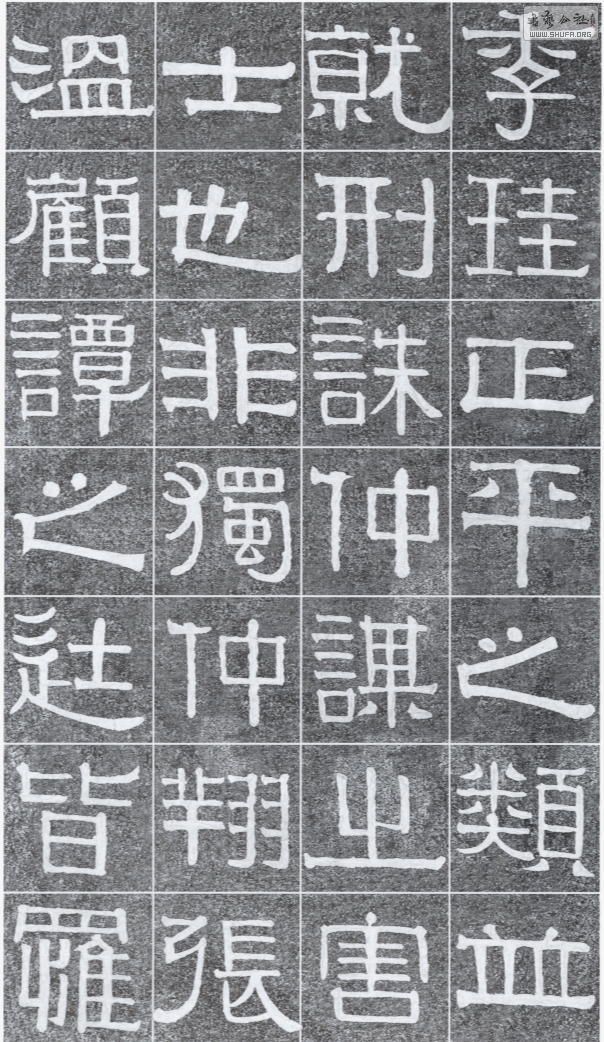 季珪正平之類並
就刑誅仲謀之害
士也非獨仲翔張
溫顧譚之徒皆罹
WWW.SHUFA.ORG